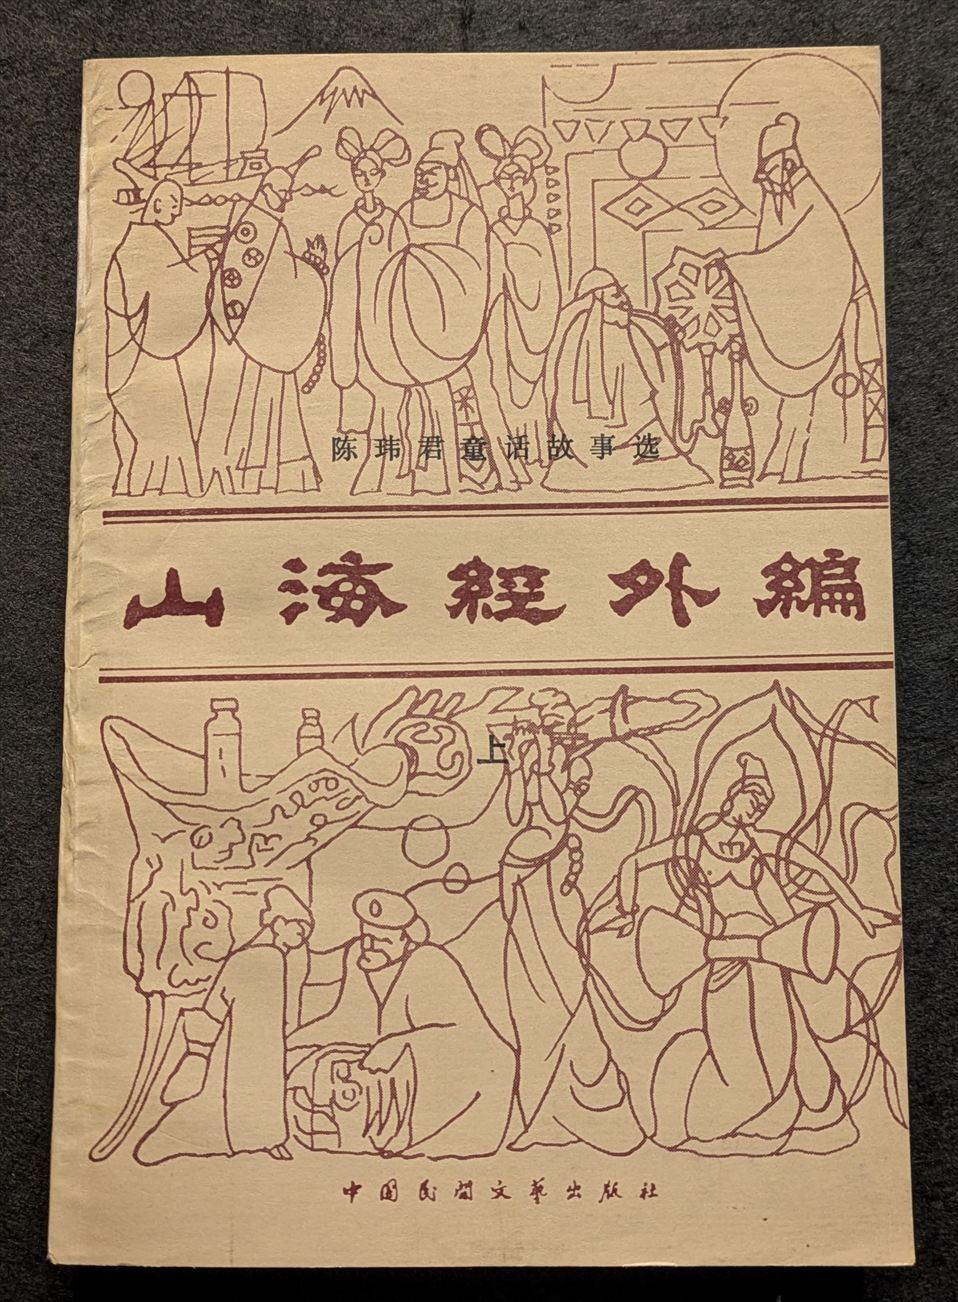 陈玮君童话故事选
山海經外編
上
中国民間文藝出版社